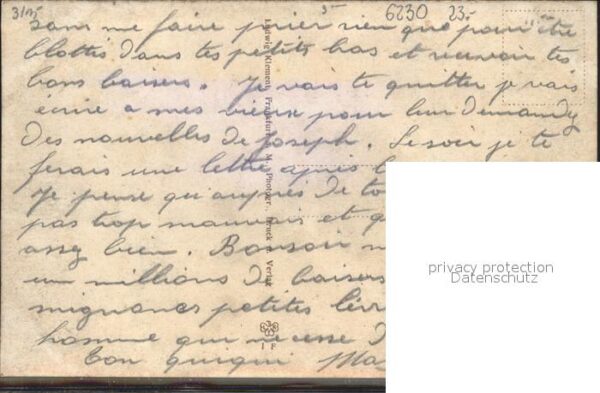 31/15 5 6230 23.-
sans me faire prier rien que pour être
blottis dans tes petits bras et recevoir tes
bons baisers. Je vais te quitter je vais
écrire a mes vieux pour leur demander
des nouvelles de Joseph. Le soir je te
ferais une lettre après
Je pense qu'auprès de to
pas trop mauvais et q
assez bien. Bonsoir
un millions de baisers
mignones petites lèvr
homme qui ne cesse d
ton quiqui Ma
Ludwig Klement, Frankfurt a. M. Photogr. Druck u. Verlag
I F
privacy protection
Datenschutz